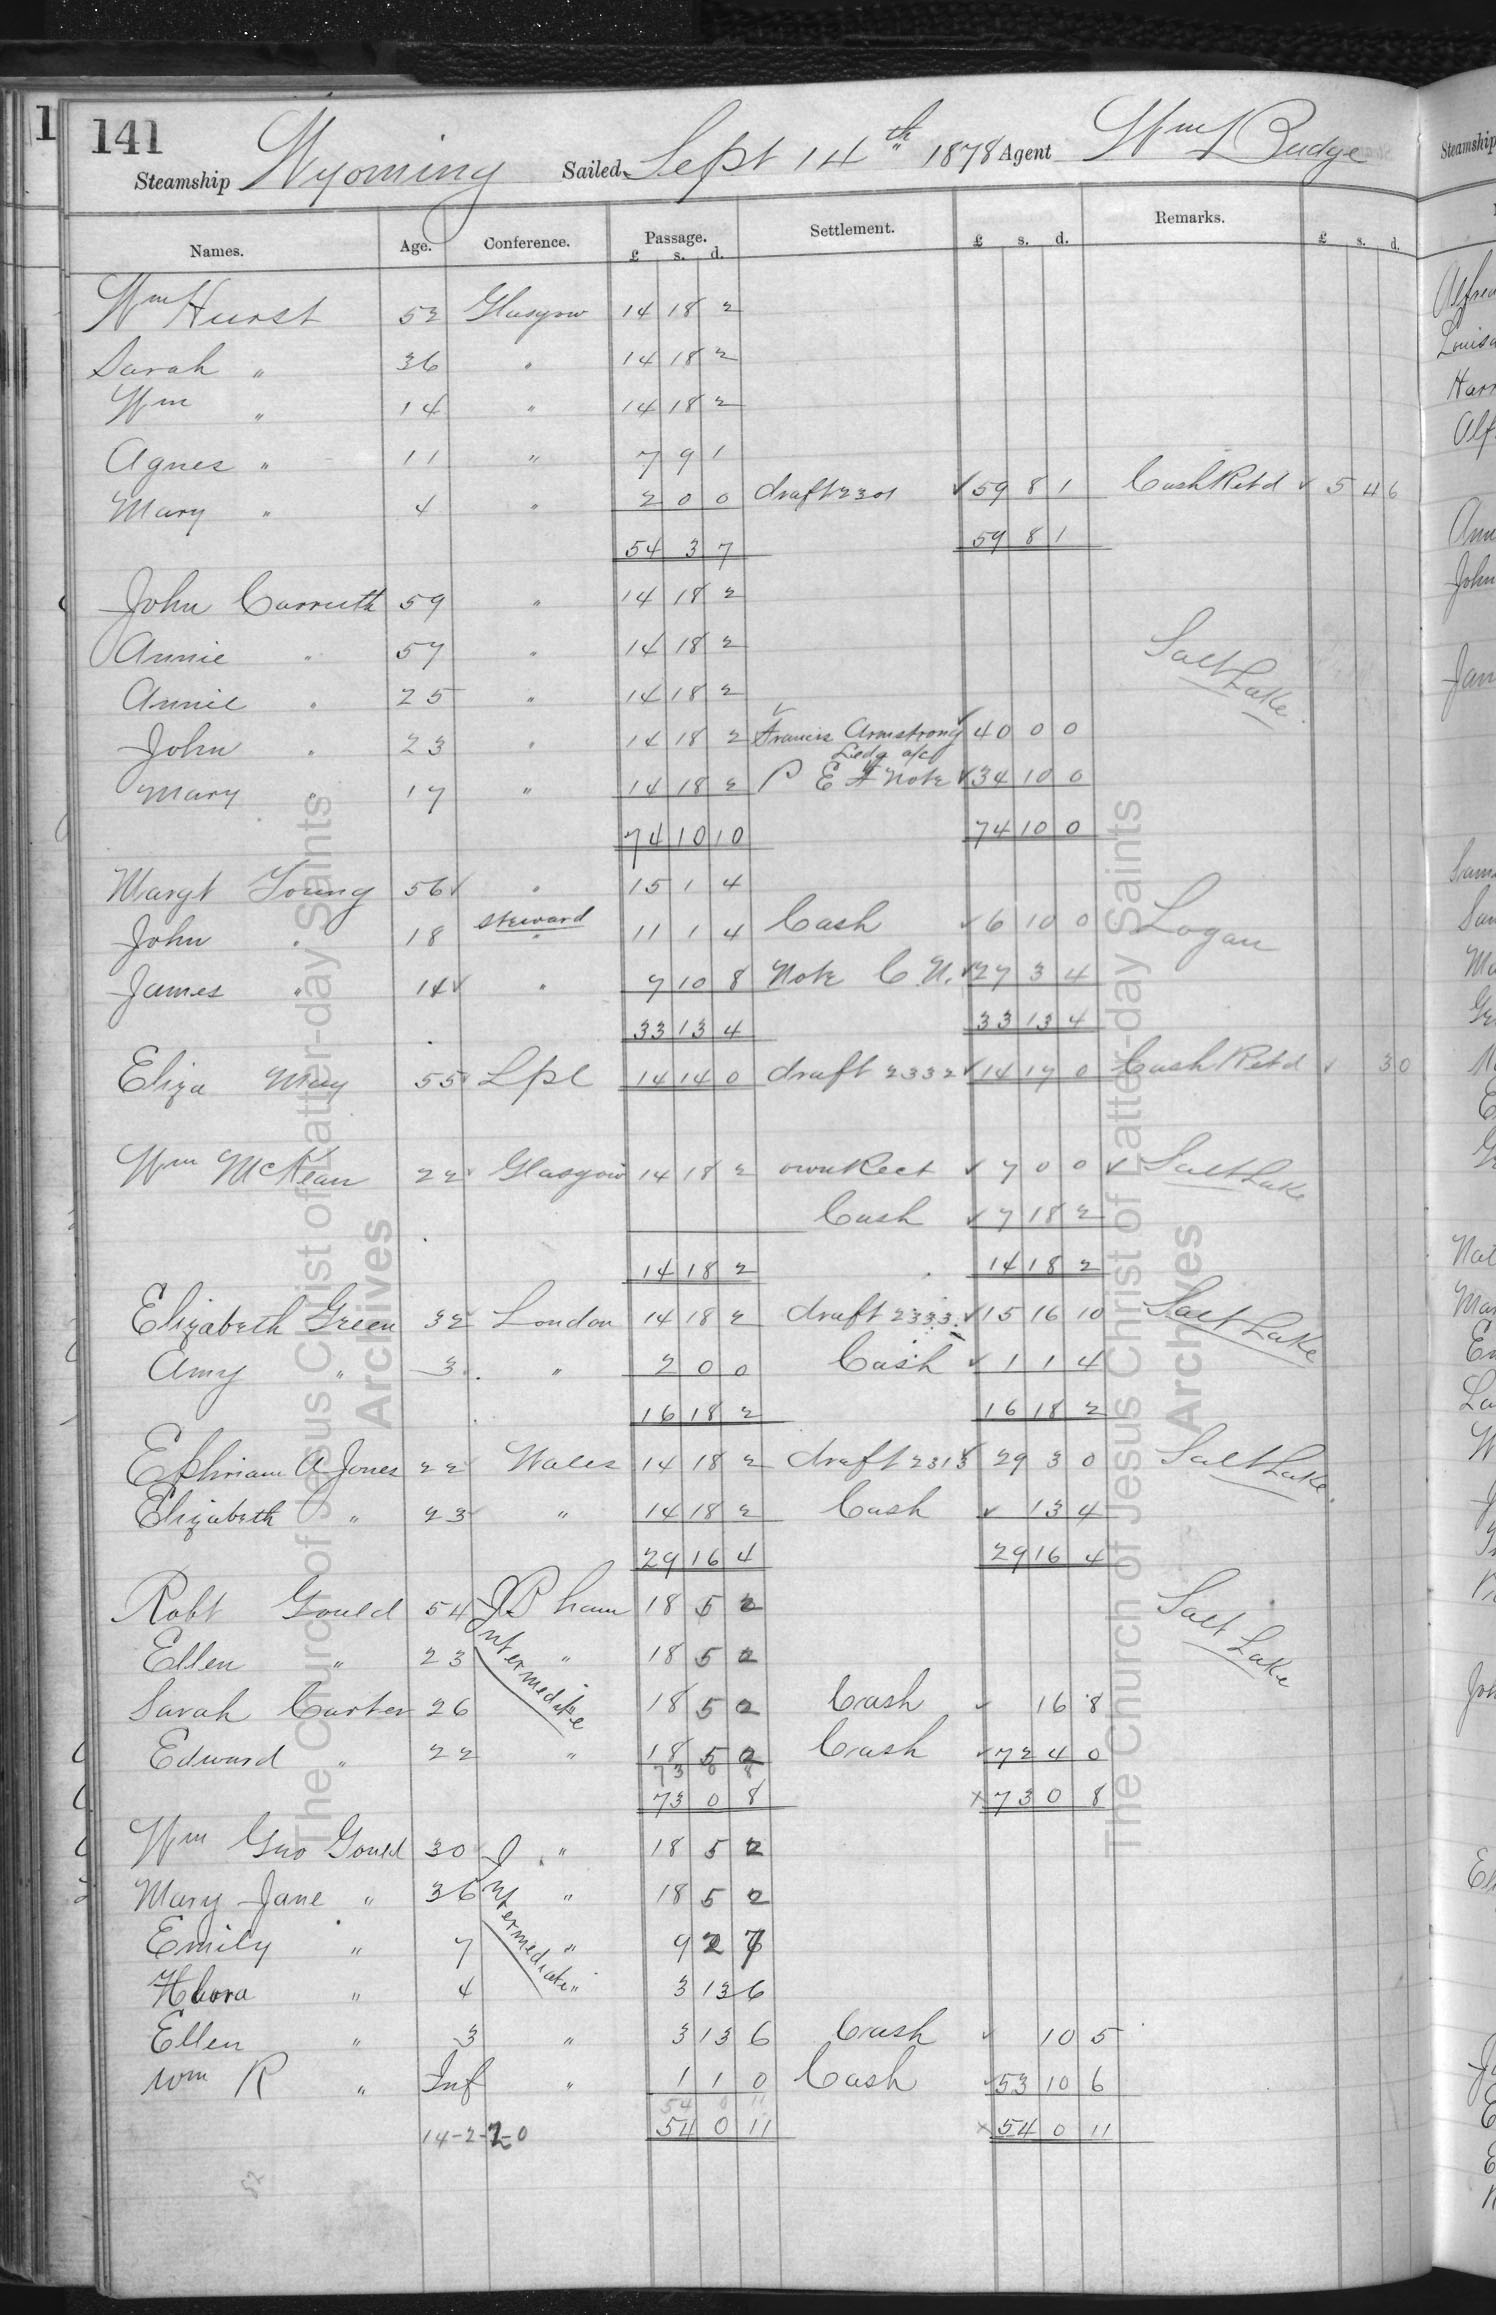 141
Steamship Wyoming Sailed Sept 14th 1878 Agent Wm Budge
Names. Age. Conference. Passage. £ s. d. Settlement. £ s. d. Remarks. £ s. d.
Wm Hurst 52 Glasgow 14 18 2
Sarah " 36 " 14 18 2
Wm " 14 " 14 18 2
Agnes " 11 " 7 9 1
Mary " 4 " 2 0 0 draft 2301 ✓ 59 8 1 Cash Retd ✓ 5 4 6
54 3 7 59 8 1
John Carruth 59 " 14 18 2
Annie " 57 " 14 18 2 Salt Lake
Annie " 25 " 14 18 2
John " 23 " 14 18 2 Francis Armstrong ✓ 40 0 0
Ledg a/c
Mary " 17 " 14 18 2 P E F Note ✓ 34 10 0
74 10 10 74 10 0
Margt Young 56 ✓ " 15 1 4
John " 18 steward " 11 1 4 Cash ✓ 6 10 0 Logan
James " 14 ✓ " 7 10 8 Note C N. ✓ 27 3 4
33 13 4 33 13 4
Eliza May 55 Lpl 14 14 0 draft 2332 ✓ 14 17 0 Cash Retd ✓ 3 0
Wm McKean 22 Glasgow 14 18 2 own Rect ✓ 7 0 0 ✓ Salt Lake
Cash ✓ 7 18 2
14 18 2 14 18 2
Elizabeth Green 32 London 14 18 2 draft 2333 ✓ 15 16 10 Salt Lake
Amy " 3 " 2 0 0 Cash ✓ 1 1 4
16 18 2 16 18 2
Ephriam A Jones 22 Wales 14 18 2 draft 2313 29 3 0 Salt Lake
Elizabeth " 23 " 14 18 2 Cash ✓ 13 4
29 16 4 29 16 4
Robt Gould 54 B ham 18 5 2 Salt Lake
Intermediate
Ellen " 23 " 18 5 2
Sarah Carter 26 " 18 5 2 Cash ✓ 16 8
Edward " 22 " 18 5 2 Cash ✓ 72 4 0
73 0 8
73 0 8 x 73 0 8
Wm Geo Gould 30 " 18 5 2
Intermediate
Mary Jane " 36 " 18 5 2
Emily " 7 " 9 2 7
" 4 " 3 13 6
Ellen " 3 " 3 13 6 Cash ✓ 10 5
Wm R " Inf " 1 1 0 Cash ✓ 53 10 6
54 0 11
14-2-2-0 54 0 11 x 54 0 11
The Church of Jesus Christ of Latter-day Saints
Archives
The Church of Jesus Christ of Latter-day Saints
Archives
Steamship